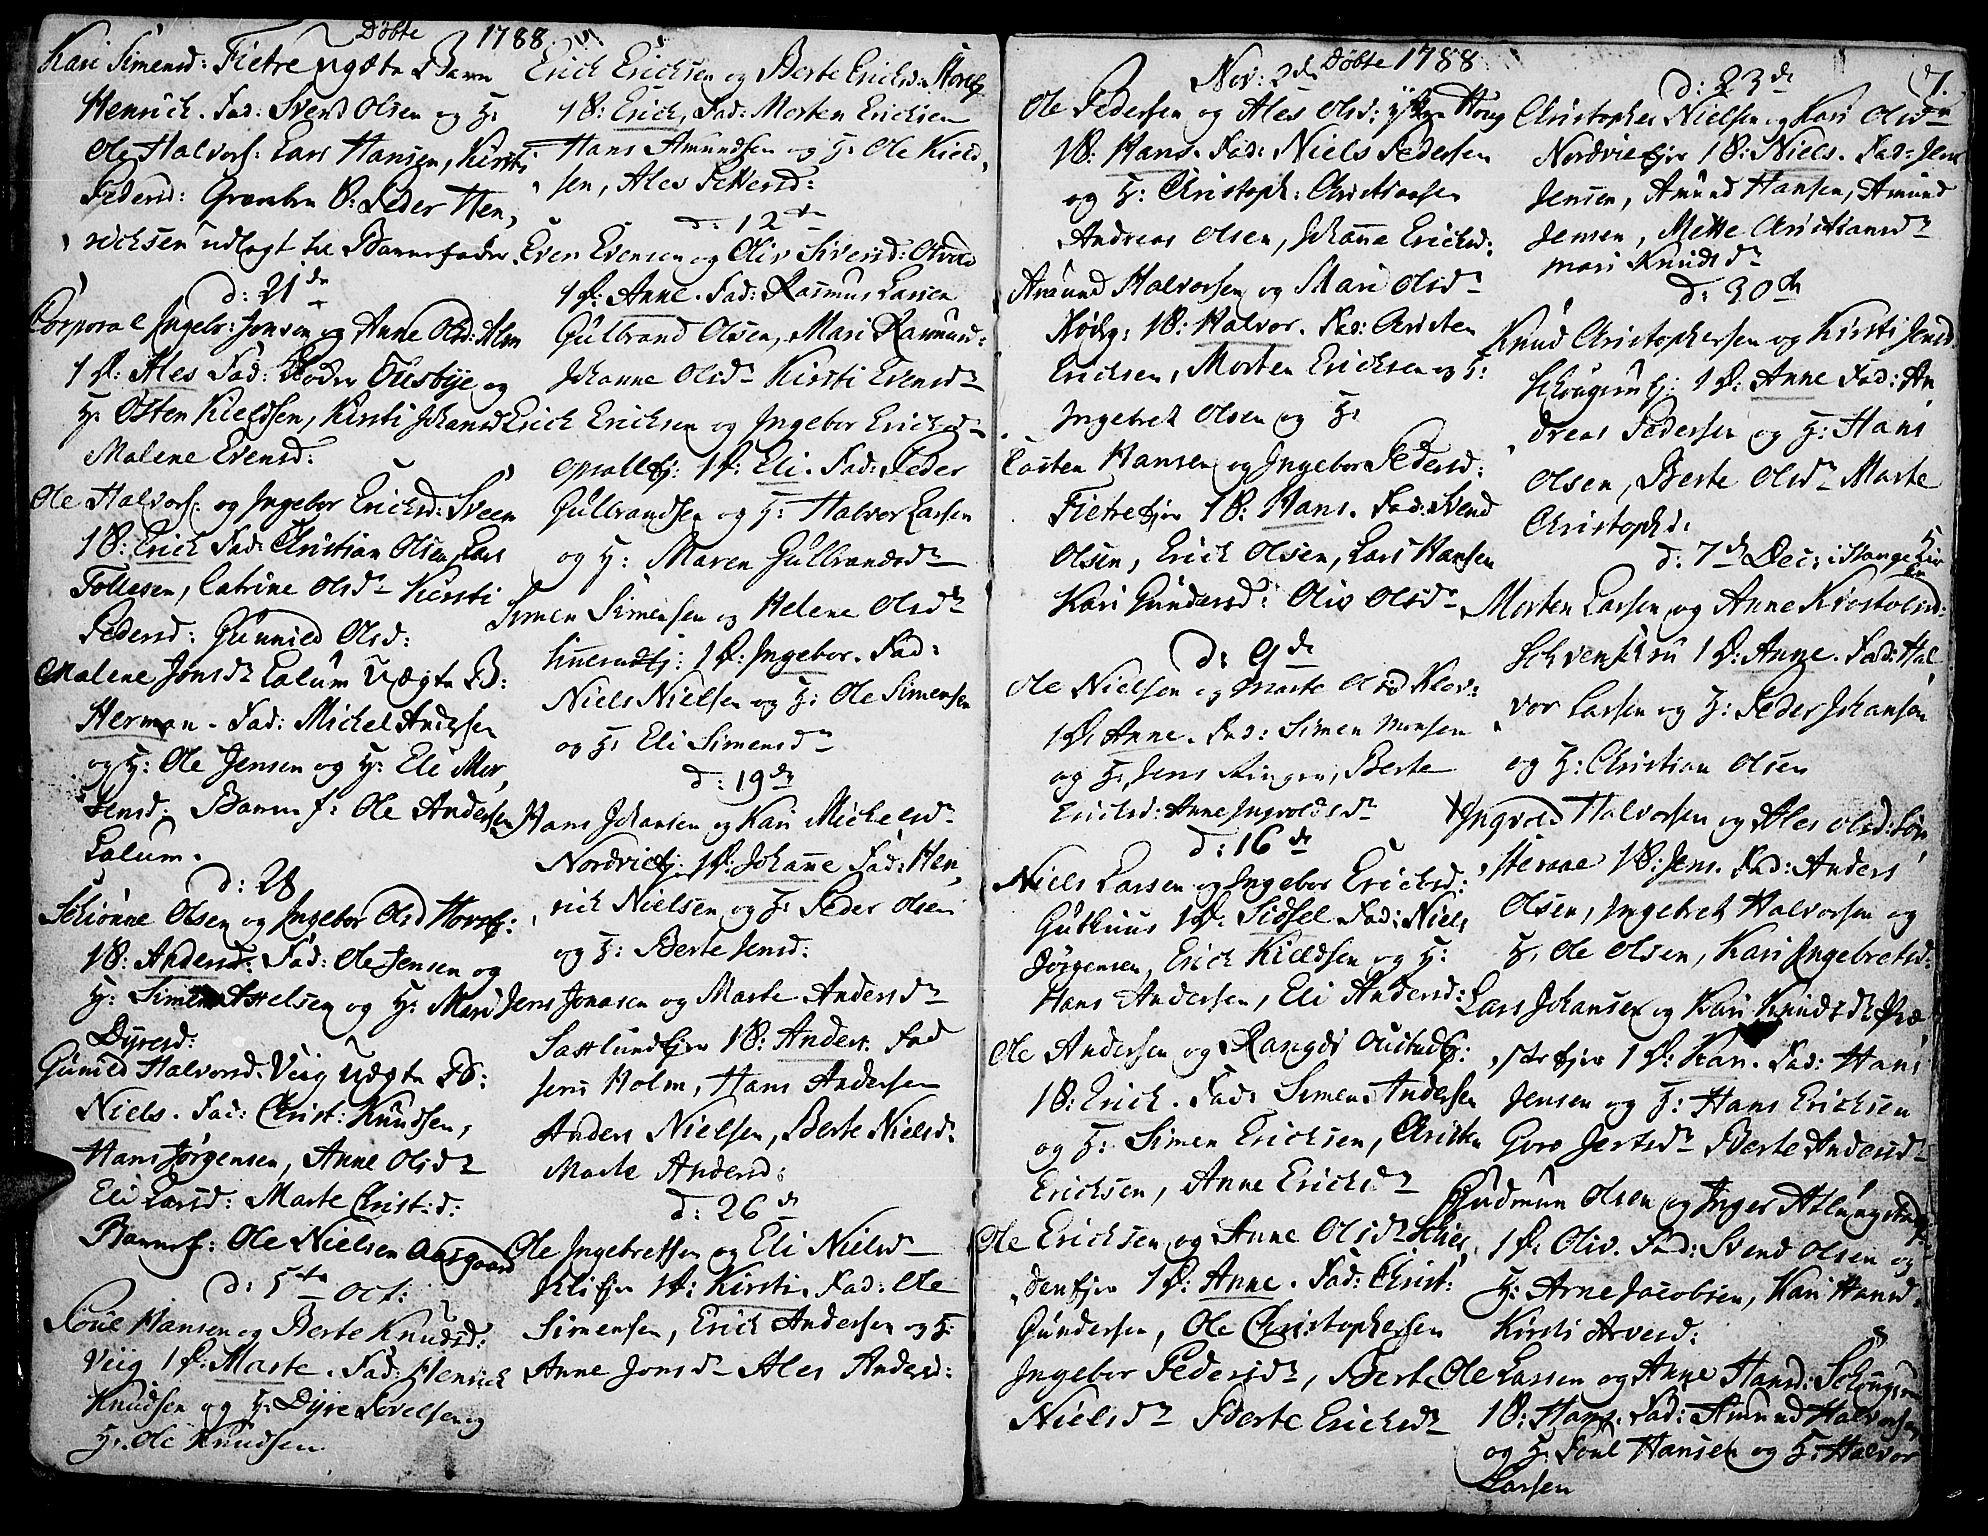 Døbte 1788
Kari Simensd: Fietre uægte Barn
Henrich. Fad: Svend Olsen og H:
Ole Halvors: Lars Hansen, Kirsti
Pedersd: Peder Hen,
richsen udlagt til Barnefader.
d: 21de
Corporal Ingebr: Jonsen og Anne Olsd: Alm
1 P: Ales Fad: Peder Ousbye og
H: Østen Kieldsen, Kirsti Johansd
Malene Evensd:
Ole Halvors: og Ingebor Ericksd: Sveen
1 B: Erick Fad: Christian Olsen, Lars
Tollesen, Catrine Olsdr Kirsti
Pedersd: Gunnild Olsd:
Malene Jonsdr Lalum uægte B:
Herman. Fad: Michel Andersen
og H: Ole Jensen og H: Eli Mor,
tensd: Barnef: Ole Andersen
Lalum.
d: 28
Schiønne Olsen og Ingebor Olsd
1 B: Anders: Fad: Ole Jensen og
H: Simen Axelsen og H: Mari
Dyresd:
Gunild Halvorsd. Viig uægte B:
Niels. Fad: Christ: Knudsen,
Hans Jørgensen, Anne Olsdr
Eli Larsd: Marte Christ:d:
Barnef: Ole Nielsen Aasgaard
d: 5te Oct:
Poul Hansen og Berte Knudsd:
Viig 1 P: Marte. Fad: Henrick
Knudsen og H: Dyre Povelsen og
H: Ole Knudsen
Erick Ericksen og Berte Ericksd:
1 B: Erick, Fad: Morten Ericksen
Hans Amundsen og H: Ole Kield,
sen, Ales Pettersd:
d: 12te
Even Evensen og Oliv Siversd:
1 P: Anne. Fad: Rasmus Larsen
Gulbrand Olsen, Mari Rasmusd:
Johanne Olsdr Kirsti Evensdr
Erich Ericksen og Ingebor Ericksdr
opsallej: 1 P: Eli. Fad: Peder
Gulbrandsen og H: Halvor Larsen
og H: Maren Gulbrandsdr
Simen Simensen og Helene Olsdr
1 P: Ingebor. Fad:
Niels Nielsen og H: Ole Simensen
og H: Eli Simensdr
d: 19de
Hans Johansen og Kari Michelsdr
Nordviej: 1 P: Johanne Fad: Hen,
rich Nielsen og H: Peder Olsen
og H: Berte Jensd:
Jens Jonasen og Marte Andersdr
Saxlundejer 1 B: Anders. Fad
Jens Holm, Hans Andersen
Anders Nielsen, Berte Nielsd:
Marte Andersd:
d: 26de
Ole Ingebretsen og Eli Nielsdr
1 P: Kirsti. Fad: Ole
Simensen, Erich Andersen og H:
Anne Jonsdr Ales Andersd:
Nov: 2de Døbte 1788
Ole Pedersen og Ales Olsd: Houg
1 B: Hans. Fad: Niels Pedersen
og H: Christoph: Christiansen
Andreas Olsen, Johanna Ericksd:
Amund Halvorsen og Mari Olsdr
1 B: Halvor. Fad: Christen
Ericksen, Morten Ericksen og H:
Ingebret Olsen og H:
Carsten Hansen og Ingebor Pedersd:
Fietreejer 1 B: Hans. Fad: Svend
Olsen, Erick Olsen, Lars Hansen
Kari Gundersd: Oliv Olsdr
d: 9de
Ole Nielsen og Marte Olsd Klov:
1 P: Anne. Fad: Simen Monsen
og H: Jens Ringen, Berte
Ericksd: Anne Ingvoldsdr
d: 16de
Niels Larsen og Ingebor Ericksd:
Gutkuus 1 P: Sidsel Fad: Niels
Jørgensen, Erick Kieldsen og H:
Hans Andersen, Eli Andersd:
Ole Andersen og Rangdi
1 B: Erick. Fad: Simen Andersen
og H: Simen Ericksen, Christen
Ericksen, Anne Ericksdr
Ole Ericksen og Anne Olsdr Schie,
denejer 1 P: Anne. Fad: Christ:
Gundersen, Ole Christophersen
Ingebor Pedersdr, Berte
Nielsdr Berte Ericksdr
d: 23de
71.
Christopher Nielsen og Kari Olsdr
Nordvieejer 1 B: Niels. Fad: Jens
Jensen, Amund Hansen, Amund
Jensen, Mette Christiansdr
Mari Knudsdr
d: 30de
Knud Christophersen og Kirsti Jensd:
Schougrudej: 1 P: Anne Fad: An,
dreas Pedersen og H: Hans
Olsen, Berte Olsdr Marte
Christophd:
d: 7de Dec: i Stange Kir
Morten Larsen og Anne Kiostolsd:
1 P: Anne. Fad: Hal,
vor Larsen og H: Peder Johansen
og H: Christian Olsen
Ingvald Halvorsen og Ales Olsd: Søn,
steraae 1 B: Jens. Fad: Anders
Olsen, Ingebret Halvorsen og
H: Ole Olsen, Kari Ingebretsd:
Lars Johansen og Kari Knudsdr Præ
steejer 1 P: Kari. Fad: Hans
Jensen og H: Hans Ericksen
Goro Jertsdr Berte Andersdr
Gudmun Olsen og Inger
1 P: Oliv. Fad: Svend Olsen og
H: Arne Jacobsen, Kari Hansd:
Kirsti Arvesd:
Ole Larsen og Anne Hansd: Schougrud
1 B: Hans. Fad: Amund Halvorsen
og H: Poul Hansen og H: Halvor
Larsen